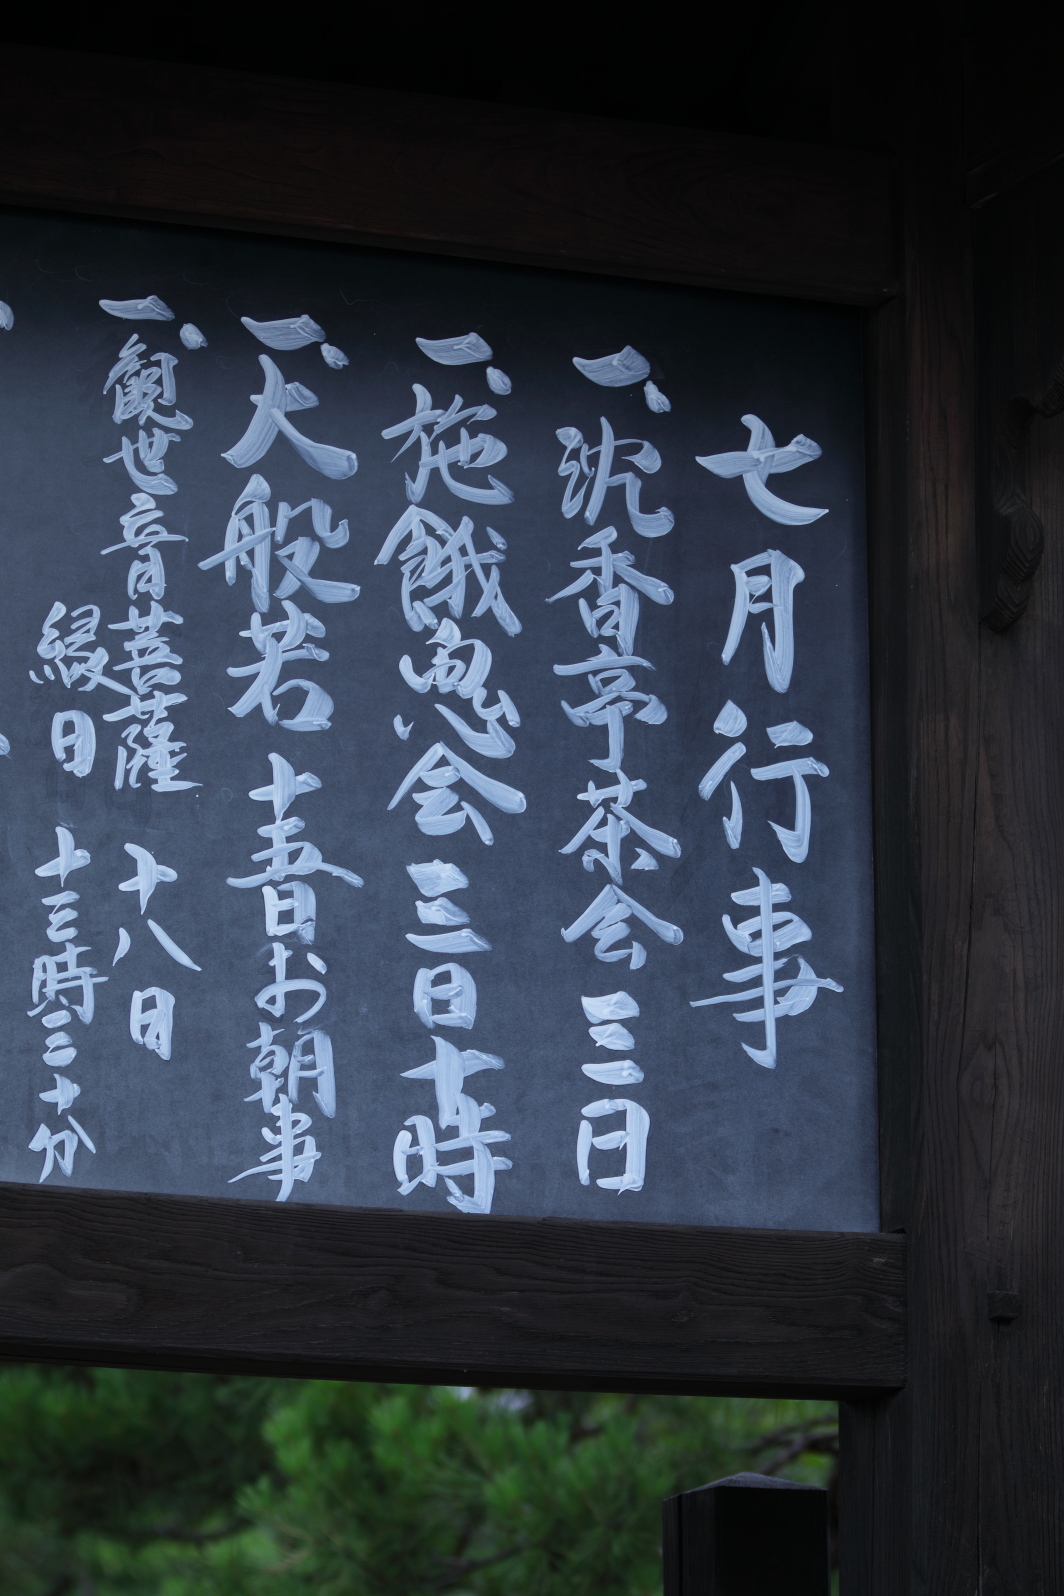 七月行事
一、沈香亭茶会 三日
一、施餓鬼会 三日 十時
一、大般若 十五日 お朝事
一、観世音菩薩 十八日
縁日 十三時三十分